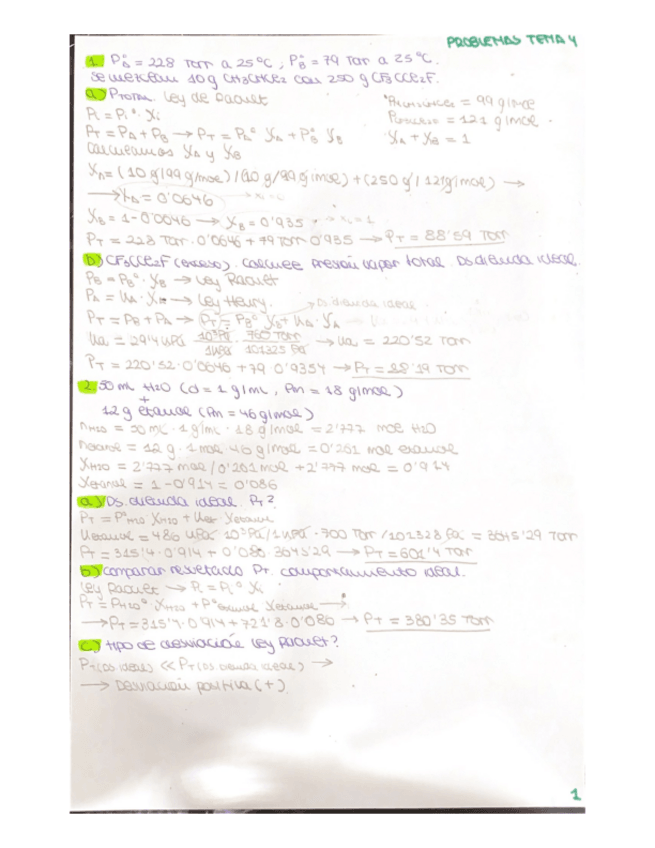 PROBLEMAS TEMA 4
1. PA° = 228 Torr a 25°C ; PB° = 79 Torr a 25°C.
se mezclan 10g CH3CHCl2 con 250 g CF3CCl2F.
a) Ptotal Ley de Raoult
= 99 g/mol
Pi = Pi° · Xi
= 121 g/mol
PT = PA + PB → PT = PA° XA + PB° XB
XA + XB = 1
Calculamos XA y XB
XA = (10 g/99 g/mol) / (10 g/99 g/mol) + (250 g / 121g/mol) →
→ XA = 0'0646
XB = 1 - 0'0646 → XB = 0'935
PT = 228 Torr · 0'0646 + 79 Torr 0'935 → PT = 88'59 Torr
b) CF3CCl2F (exceso). Calcule Presión vapor total. Ds diluida ideal.
PB = PB° · XB → Ley Raoult
PA = · XA → Ley Henry.
Ds diluida ideal
PT = PB + PA → PT = PB° XB +
= 29'4 kPa 10³Pa/1kPa · 760 Torr/101325 Pa → = 220'52 Torr
PT = 220'52 · 0'0646 + 79 · 0'9354 → PT = 88'19 Torr
2. 50 mL H2O (d = 1 g/mL, Pm = 18 g/mol)
+
12 g etanol (Pm = 46 g/mol)
nH2O = 50 mL · 1 g/mL · 18 g/mol = 2'777 mol H2O
netanol = 12 g · 1 mol · 46 g/mol = 0'261 mol etanol
XH2O = 2'777 mol / 0'261 mol + 2'777 mol = 0'914
Xetanol = 1 - 0'914 = 0'086
a) Ds. diluida ideal. PT?
PT = P°H2O XH2O + Xetanol
= 486 kPa · 10³Pa/1kPa · 760 Torr / 101325 Pa = 3645'29 Torr
PT = 315'4 · 0'914 + 0'086 · 3645'29 → PT = 601'4 Torr
b) Comparar resultado PT comportamiento ideal.
Ley Raoult → Pi = Pi° Xi
PT = PH2O° XH2O + P°etanol Xetanol →
→ PT = 315'4 · 0'914 + 721'8 · 0'086 → PT = 380'35 Torr
c) tipo de desviación Ley Raoult?
PT(Ds ideal) << PT (Ds diluida ideal) →
→ Desviación positiva (+)
1